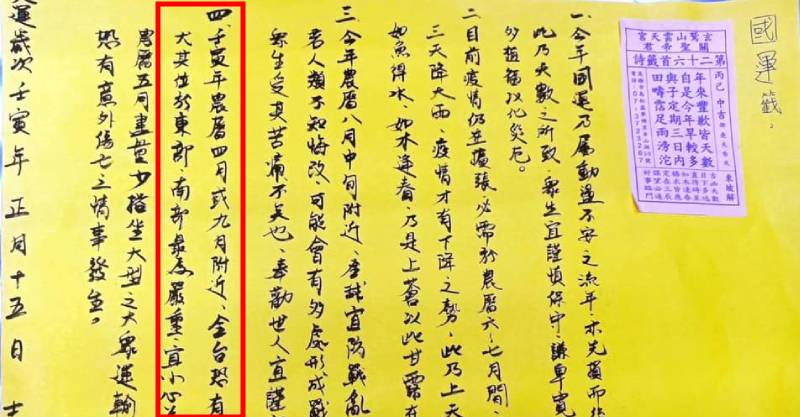 國運籤.
玄鷲山雲天宮
關聖帝君
第二十六首籤詩
丙己 中吉
年來豐歉皆天數
自是今年旱較多
與子定期三日內
田疇霑足雨滂沱
東坡解
一、今年國運乃屬動盪不安之流年,亦先損而後
此乃天數之所致,眾生宜謹慎保守謙卑寬
的植福以化災厄。
二、目前疫情仍在擴張必需於農曆六、七月間,
三天降大雨,疫情才有下降之勢,此乃上天
如魚得水,如木逢春,乃是上蒼以此甘霖在
三、今年農曆八月中旬附近,全球宜防戰亂
若人類不知悔改,可能會有多處形成戰
眾生受其苦痛不矣也,奉勸世人宜謹
四、壬寅年農曆四月或九月附近、全台恐有
尤其位於東部、南部最為嚴重,宜小心
農曆五月盡量少搭坐大型之大眾運輸
恐有意外傷亡之情事發生。
運歲次壬寅年正月十五日